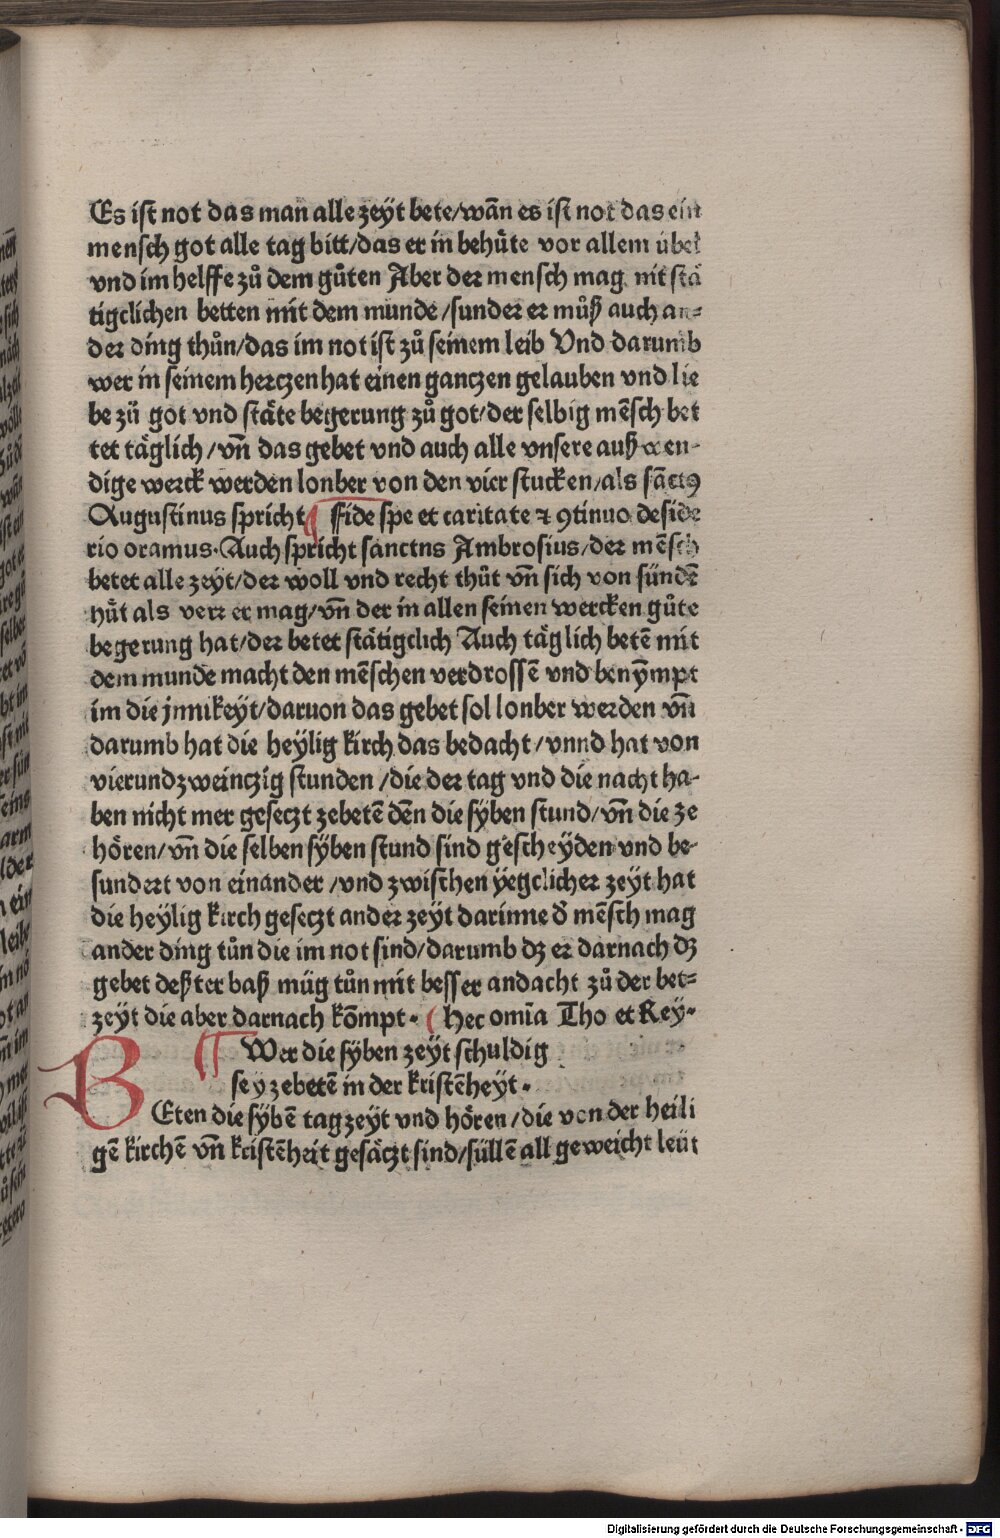 Es ist not das man alle zeyt bete/wān es ist not das ein
mensch got alle tag bitt/das er in behuͤte vor allem übel
vnd im helffe zuͦ dem guͦten Aber der mensch mag nit stä
tigclichen betten mit dem munde /sunder er muͦß auch an⸗
der ding thuͦn/das im not ist zuͦ seinem leib Vnd darumb
wer in seinem hertzen hat einen gantzen gelauben vnd lie
be zuͦ got vnd stäte begerung zuͦ got/der selbig mēsch bet
tet täglich /vn̄ das gebet vnd auch alle vnsere außwen-
dige werck werden lonber von den vier stucken/als sāctꝰ
Augustinus spricht ¶ Fide spe et caritate ⁊ ꝯtinuo deside
rio oramus. Auch spricht sanctns Ambrosius/der mēsch
betet alle zeyt/der woll vnd recht thuͦt vn̄ sich von sündē
huͤt als verr er mag/vn̄ der in allen seinen wercken guͦte
begerung hat/der betet stätigclich Auch täglich betē mit
dem munde macht den mēschen verdrossē vnd benȳmpt
im die jnnikeyt/daruon das gebet sol lonber werden vn̄
darumb hat die heylig kirch das bedacht /vnnd hat von
vierundzweintzig stunden /die der tag vnd die nacht ha-
ben nicht mer gesetzt zebetē dēn die syben stund/vn̄ die ze
hören/vn̄ die selben syben stund sind gescheyden vnd be-
sundert von einander /vnd zwischen yegclicher zeyt hat
die heylig kirch gesetzt ander zeyt darinne d̓ mēsch mag
ander ding tuͦn die im not sind/darumb dz er darnach dz
gebet deßter baß müg tuͦn mit besser andacht zuͦ der bet⸗
zeyt die aber darnach kōmpt. ( Hec om̄ia Tho et Rey.
¶ Wer die syben zeyt schuldig
sey zebetē in der kristēheyt.
BEten die sybē tagzeyt vnd hören /die von der heili
gē kirchē vn̄ kristēheit gesäczt sind/süllē all geweicht leüt
Digitalisierung gefördert durch die Deutsche Forschungsgemeinschaft - DFG